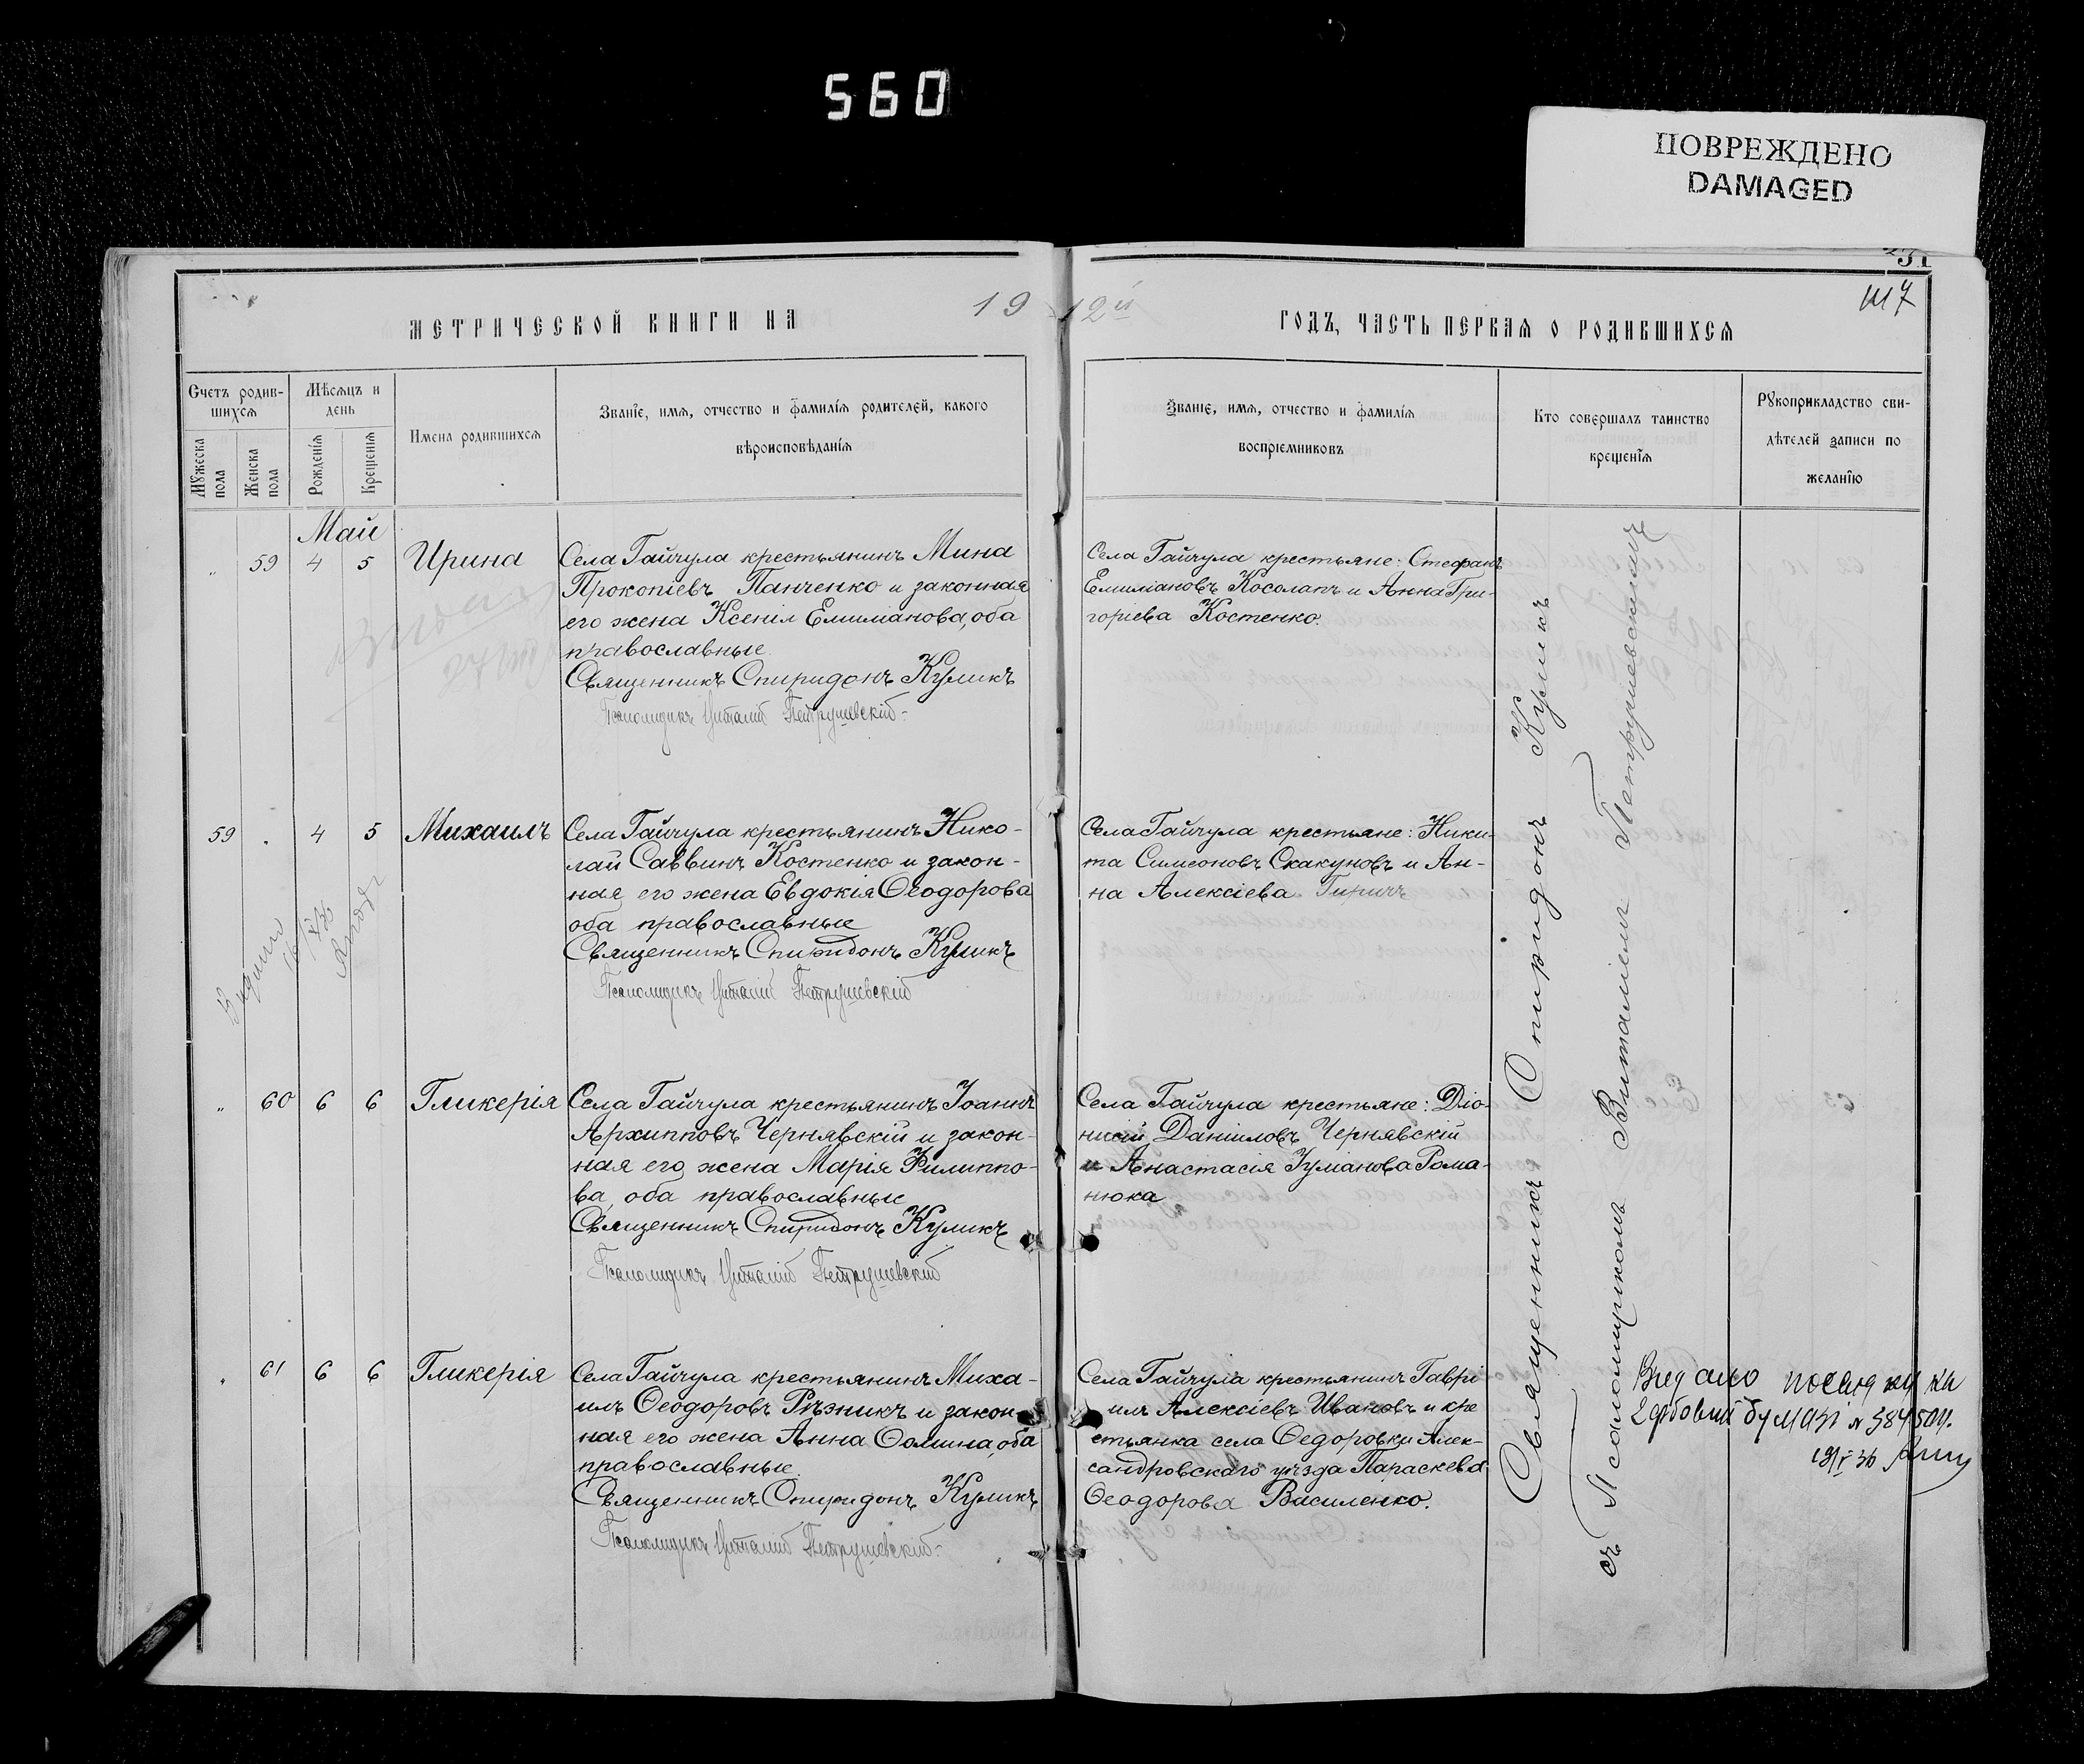 560
ПОВРЕЖДЕНО
DAMAGED
МЕТРИЧЕСКОЙ КНИГИ НА 19
12й ГОДЪ, ЧАСТЬ ПЕРВАЯ О РОДИВШИХСЯ
Счетъ родив-
шихся
Мужеска пола
Женска пола
Мѣсяцъ и
день
Рожденія
Крещенія
Имена родившихся
Званіе, имя, отчество и фамилія родителей, какого
вѣроисповѣданія
Званіе, имя, отчество и фамилія
воспріемниковъ
Кто совершалъ таинство
крещенія
Рукоприкладство сви-
дѣтелей записи по
желанію
Май
59 4 5 Ирина
Села Гайчула крестьянинъ Мина
Прокопіевъ Панченко и законная
его жена Ксенія Емиліанова, оба
православные
Священникъ Спиридонъ Куликъ
Псаломщикъ Виталій Петрушевскій
Села Гайчула крестьяне: Стефанъ
Емиліановъ Косолапъ и Анна Гри-
горіева Костенко.
59 4 5 Михаилъ
Села Гайчула крестьянинъ Нико-
лай Саввинъ Костенко и закон-
ная его жена Евдокія Ѳеодорова
оба православные
Священникъ Спиридонъ Куликъ
Псаломщикъ Виталій Петрушевскій
Села Гайчула крестьяне: Ники-
та Симеоновъ Скакуновъ и Ан-
на Алексіева
Видано
60 6 6 Гликерія
Села Гайчула крестьянинъ Іоаннъ
Архипповъ Чернявскій и закон-
ная его жена Марія Филиппо-
ва, оба православные
Священникъ Спиридонъ Куликъ
Псаломщикъ Виталій Петрушевскій
Села Гайчула крестьяне: Діо-
нисій Даніиловъ Чернявскій
и Анастасія Іуліанова Рома-
нюка
61 6 6 Гликерія
Села Гайчула крестьянинъ Миха-
илъ Ѳеодоровъ Рѣзникъ и закон-
ная его жена Анна Ѳомина, оба
православные.
Священникъ Спиридонъ Куликъ
Псаломщикъ Виталій Петрушевскій
Села Гайчула крестьянинъ Гаврі
илъ Алексіевъ Ивановъ и кре
стьянка села Ѳедоровки Алек-
сандровскаго уѣзда Параскева
Ѳеодорова Василенко.
Священникъ Спиридонъ Куликъ
съ Псаломщикомъ Виталіемъ Петрушевскимъ
Видано